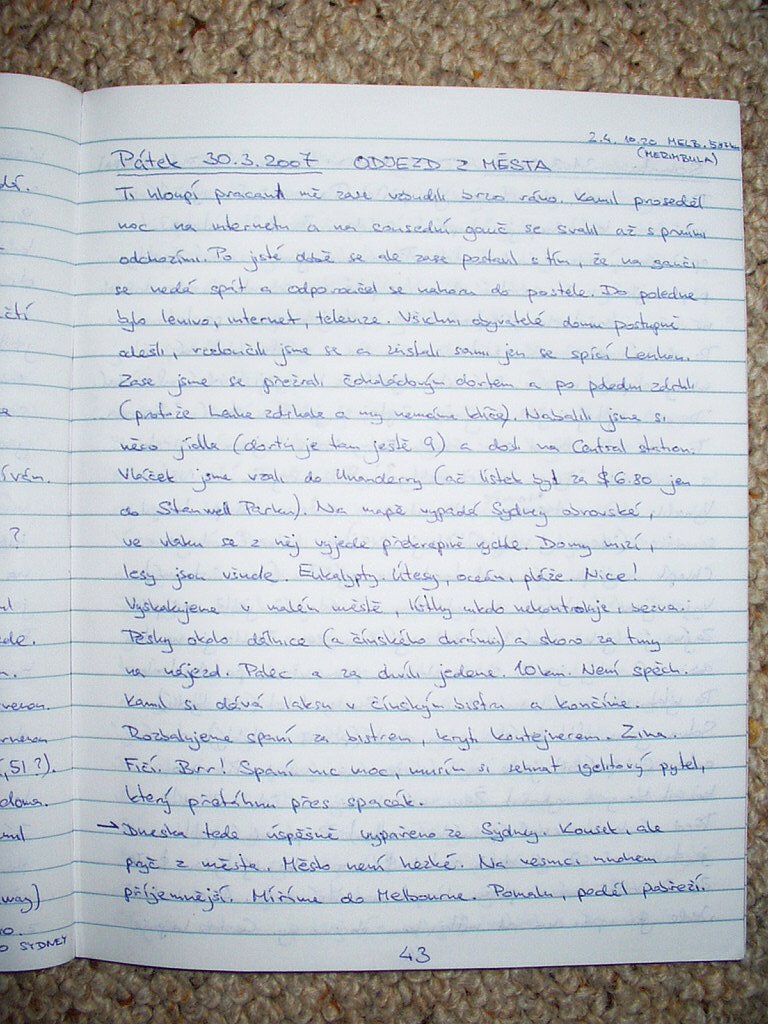 2.4. 10.20 MELB. 582km
(MERIMBULA)
Pátek 30.3.2007 ODJEZD Z MĚSTA
Ti hloupí pracanti mě zase vzbudili brzo ráno. Kamil proseděl
noc na internetu a na sousední gauč se svalil až s prvními
odchozími. Po jisté době se ale zase postavil s tím, že na gauči
se nedá spát a odporoučel se nahoru do postele. Do poledne
bylo lenivo, internet, televize. Všichni obyvatelé domu postupně
odešli, rozloučili jsme se a zůstali sami jen se spící Lenkou.
Zase jsme se přežrali čokoládovým dortem a po poledni zdrhli
(protože Lenka zdrhala a my nemáme klíče). Nabalili jsme si
něco jídla (dortů je tam ještě 9) a došli na Central station.
Vláček jsme vzali do Unanderry (ač lístek byl za $6.80 jen
do Stanwell Parku). Na mapě vypadá Sydney obrovské,
ve vlaku se z něj vyjede překvapivě rychle. Domy mizí,
lesy jsou všude. Eukalypty. Útesy, oceán, pláže. Nice!
Vyskakujeme v malém městě, lístky nikdo nekontroluje, bezva.
Pěšky okolo dálnice (a čínského chrámu) a skoro za tmy
na nájezd. Palec a za chvíli jedeme. 10km. Není spěch.
Kamil si dává laksu v čínským bistru a končíme.
Rozbalujeme spaní za bistrem, kryti kontejnerem. Zima.
Fičí. Brr! Spaní nic moc, musím si sehnat igelitový pytel,
který přetáhnu přes spacák.
→ Dneska tedy úspěšně vypařeno ze Sydney. Kousek, ale
pryč z města. Město není hezké. Na vesnici mnohem
příjemnější. Míříme do Melbourne. Pomalu, podél pobřeží.
43
čtí
?
,51?).
doma.
way)
O SYDNEY